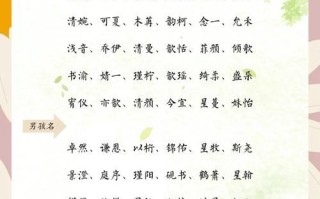 清婉、可夏、木苒、韵柯、念一、允禾
浅音、乔伊、清曼、歆恬、菲颜、倾歌
书渝、婧一、瑾柠、歆瑶、绮霏、盛朵
宥仪、亦歆、清颜、今宝、星蔓、姝怡
男孩名
卓然、谦恩、以珩、锦佑、星牧、斯尧
景澄、庭序、瑾阳、砚书、鹤萧、星翰